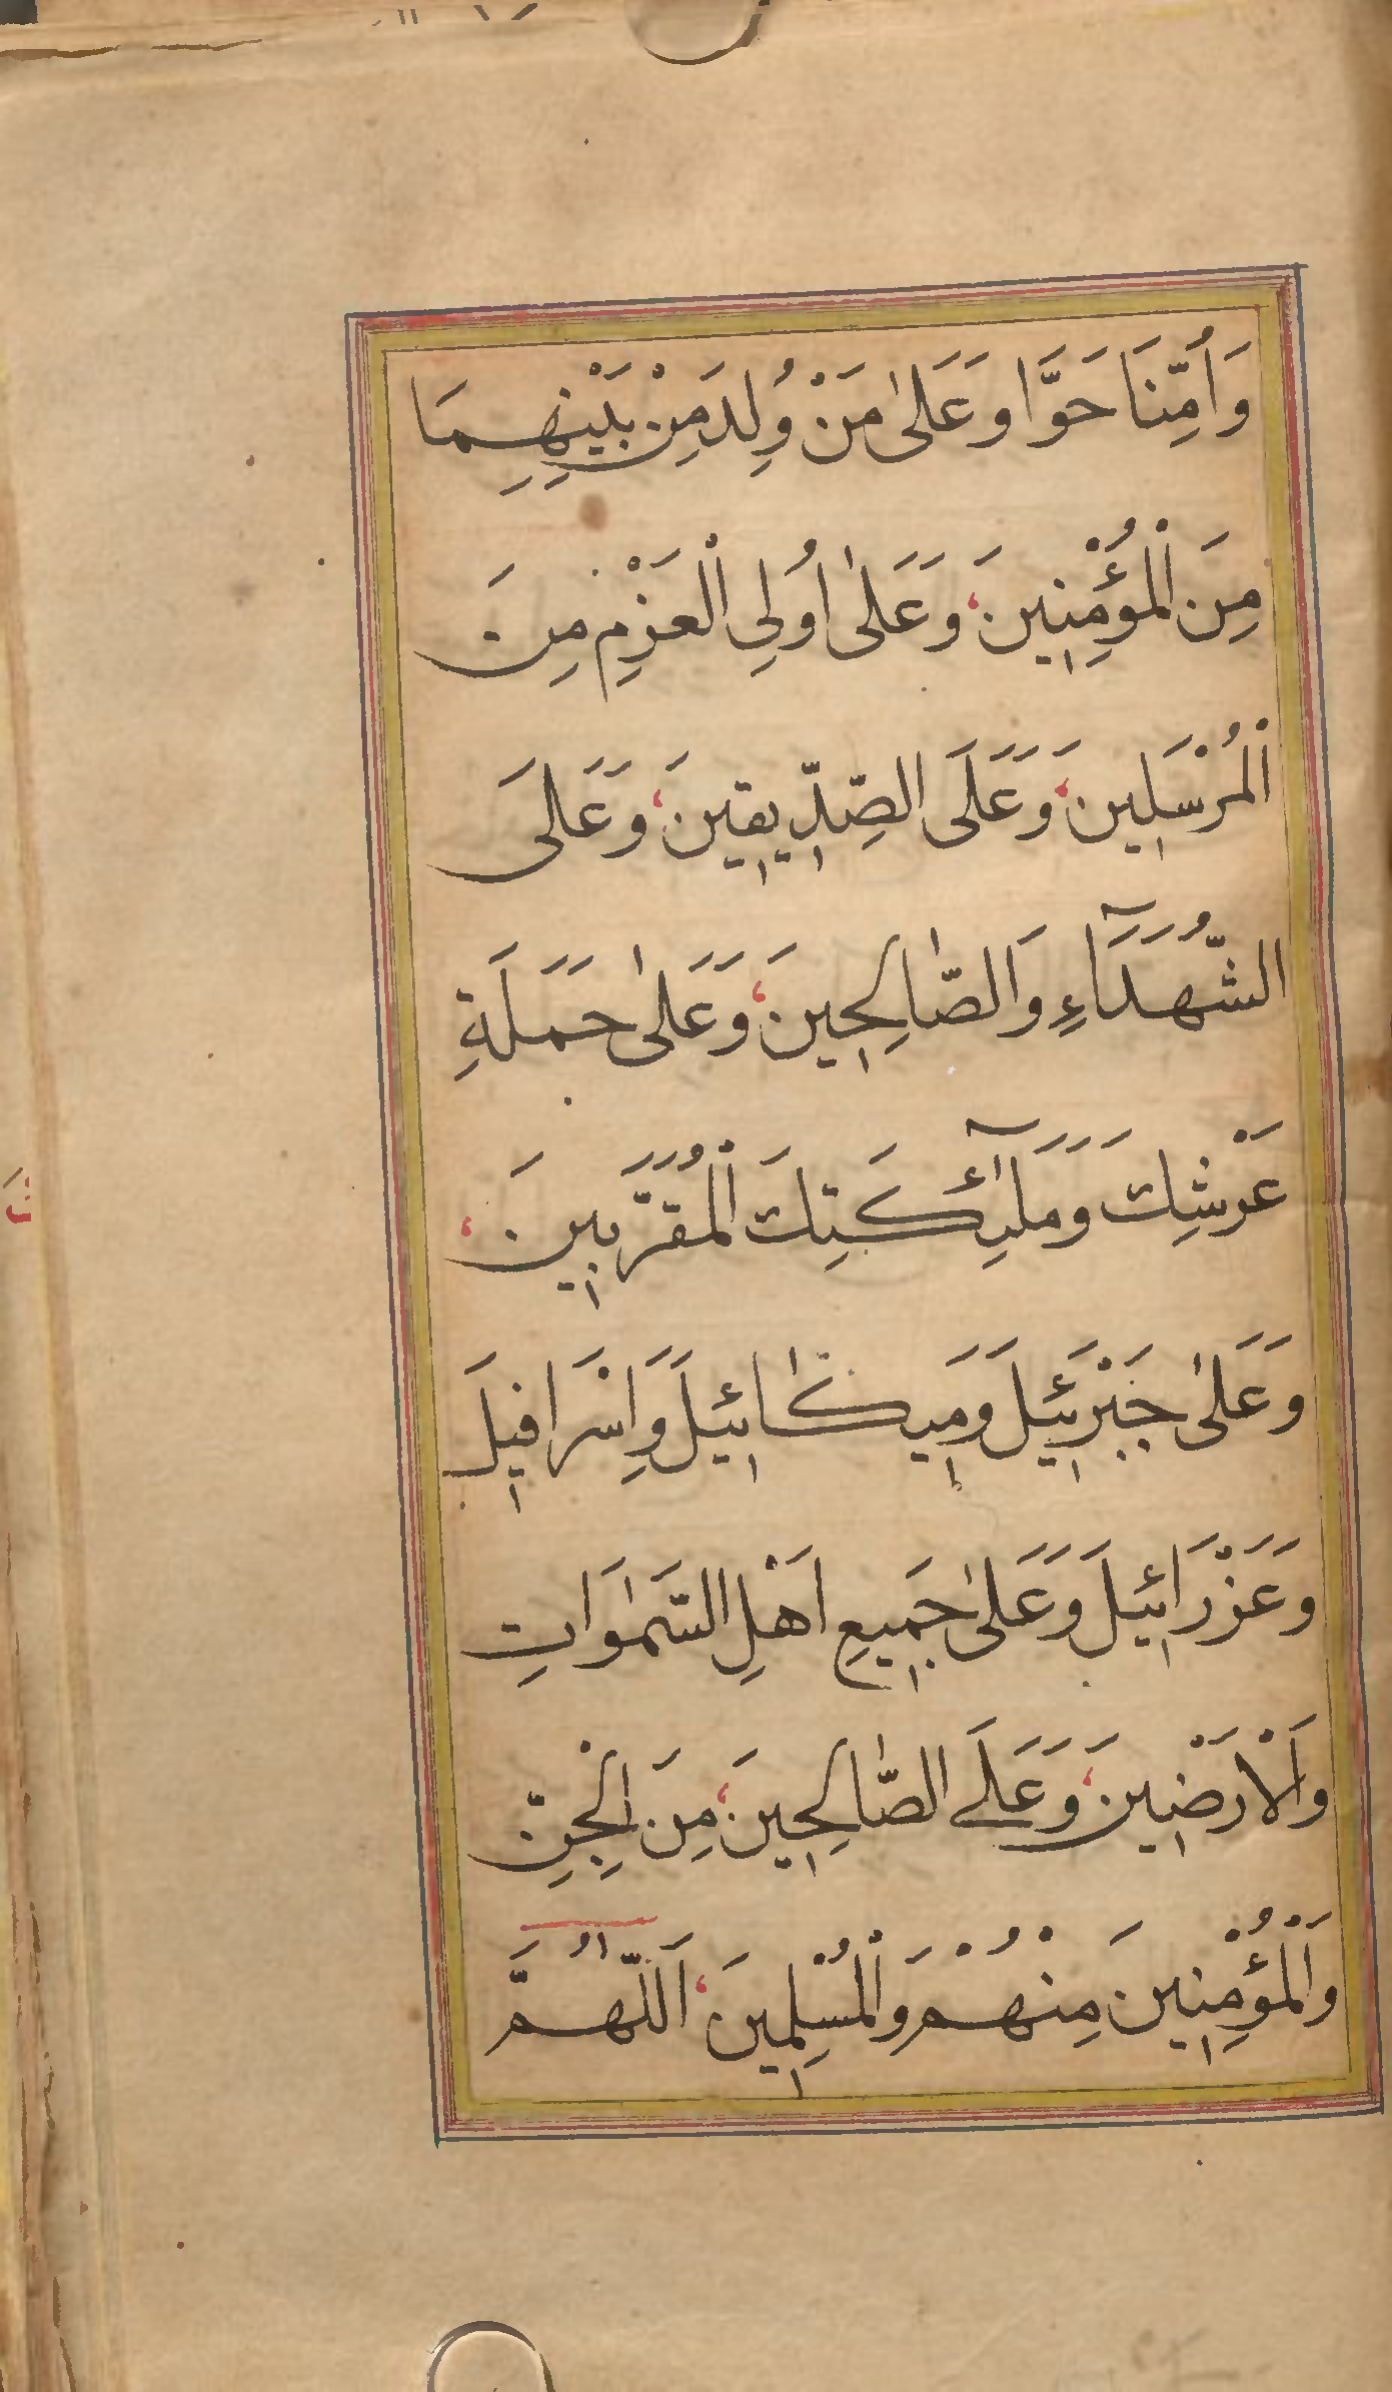 وَأُمِّنَا حَوَّا وَعَلٰى مَنْ وُلِدَ مِنْ بَيْنِهِمَا
مِنَ الْمُؤْمِنِينَ، وَعَلٰى اُولِي الْعَزْمِ مِنَ
الْمُرْسَلِينَ، وَعَلَى الصِّدِّيقِينَ، وَعَلَى
الشُّهَدَآءِ وَالصَّالِحِينَ، وَعَلٰى حَمَلَةِ
عَرْشِكَ وَمَلٰٓئِكَتِكَ الْمُقَرَّبِينَ،
وَعَلٰى جَبْرَئِيلَ وَمِيكَائِيلَ وَاِسْرَافِيلَ
وَعَزْرَائِيلَ وَعَلٰى جَمِيعِ اَهْلِ السَّمٰوَاتِ
وَالْاَرَضِينَ، وَعَلَى الصَّالِحِينَ، مِنَ الْجِنِّ
وَالْمُؤْمِنِينَ مِنْهُمْ وَالْمُسْلِمِينَ، اَللّٰهُمَّ